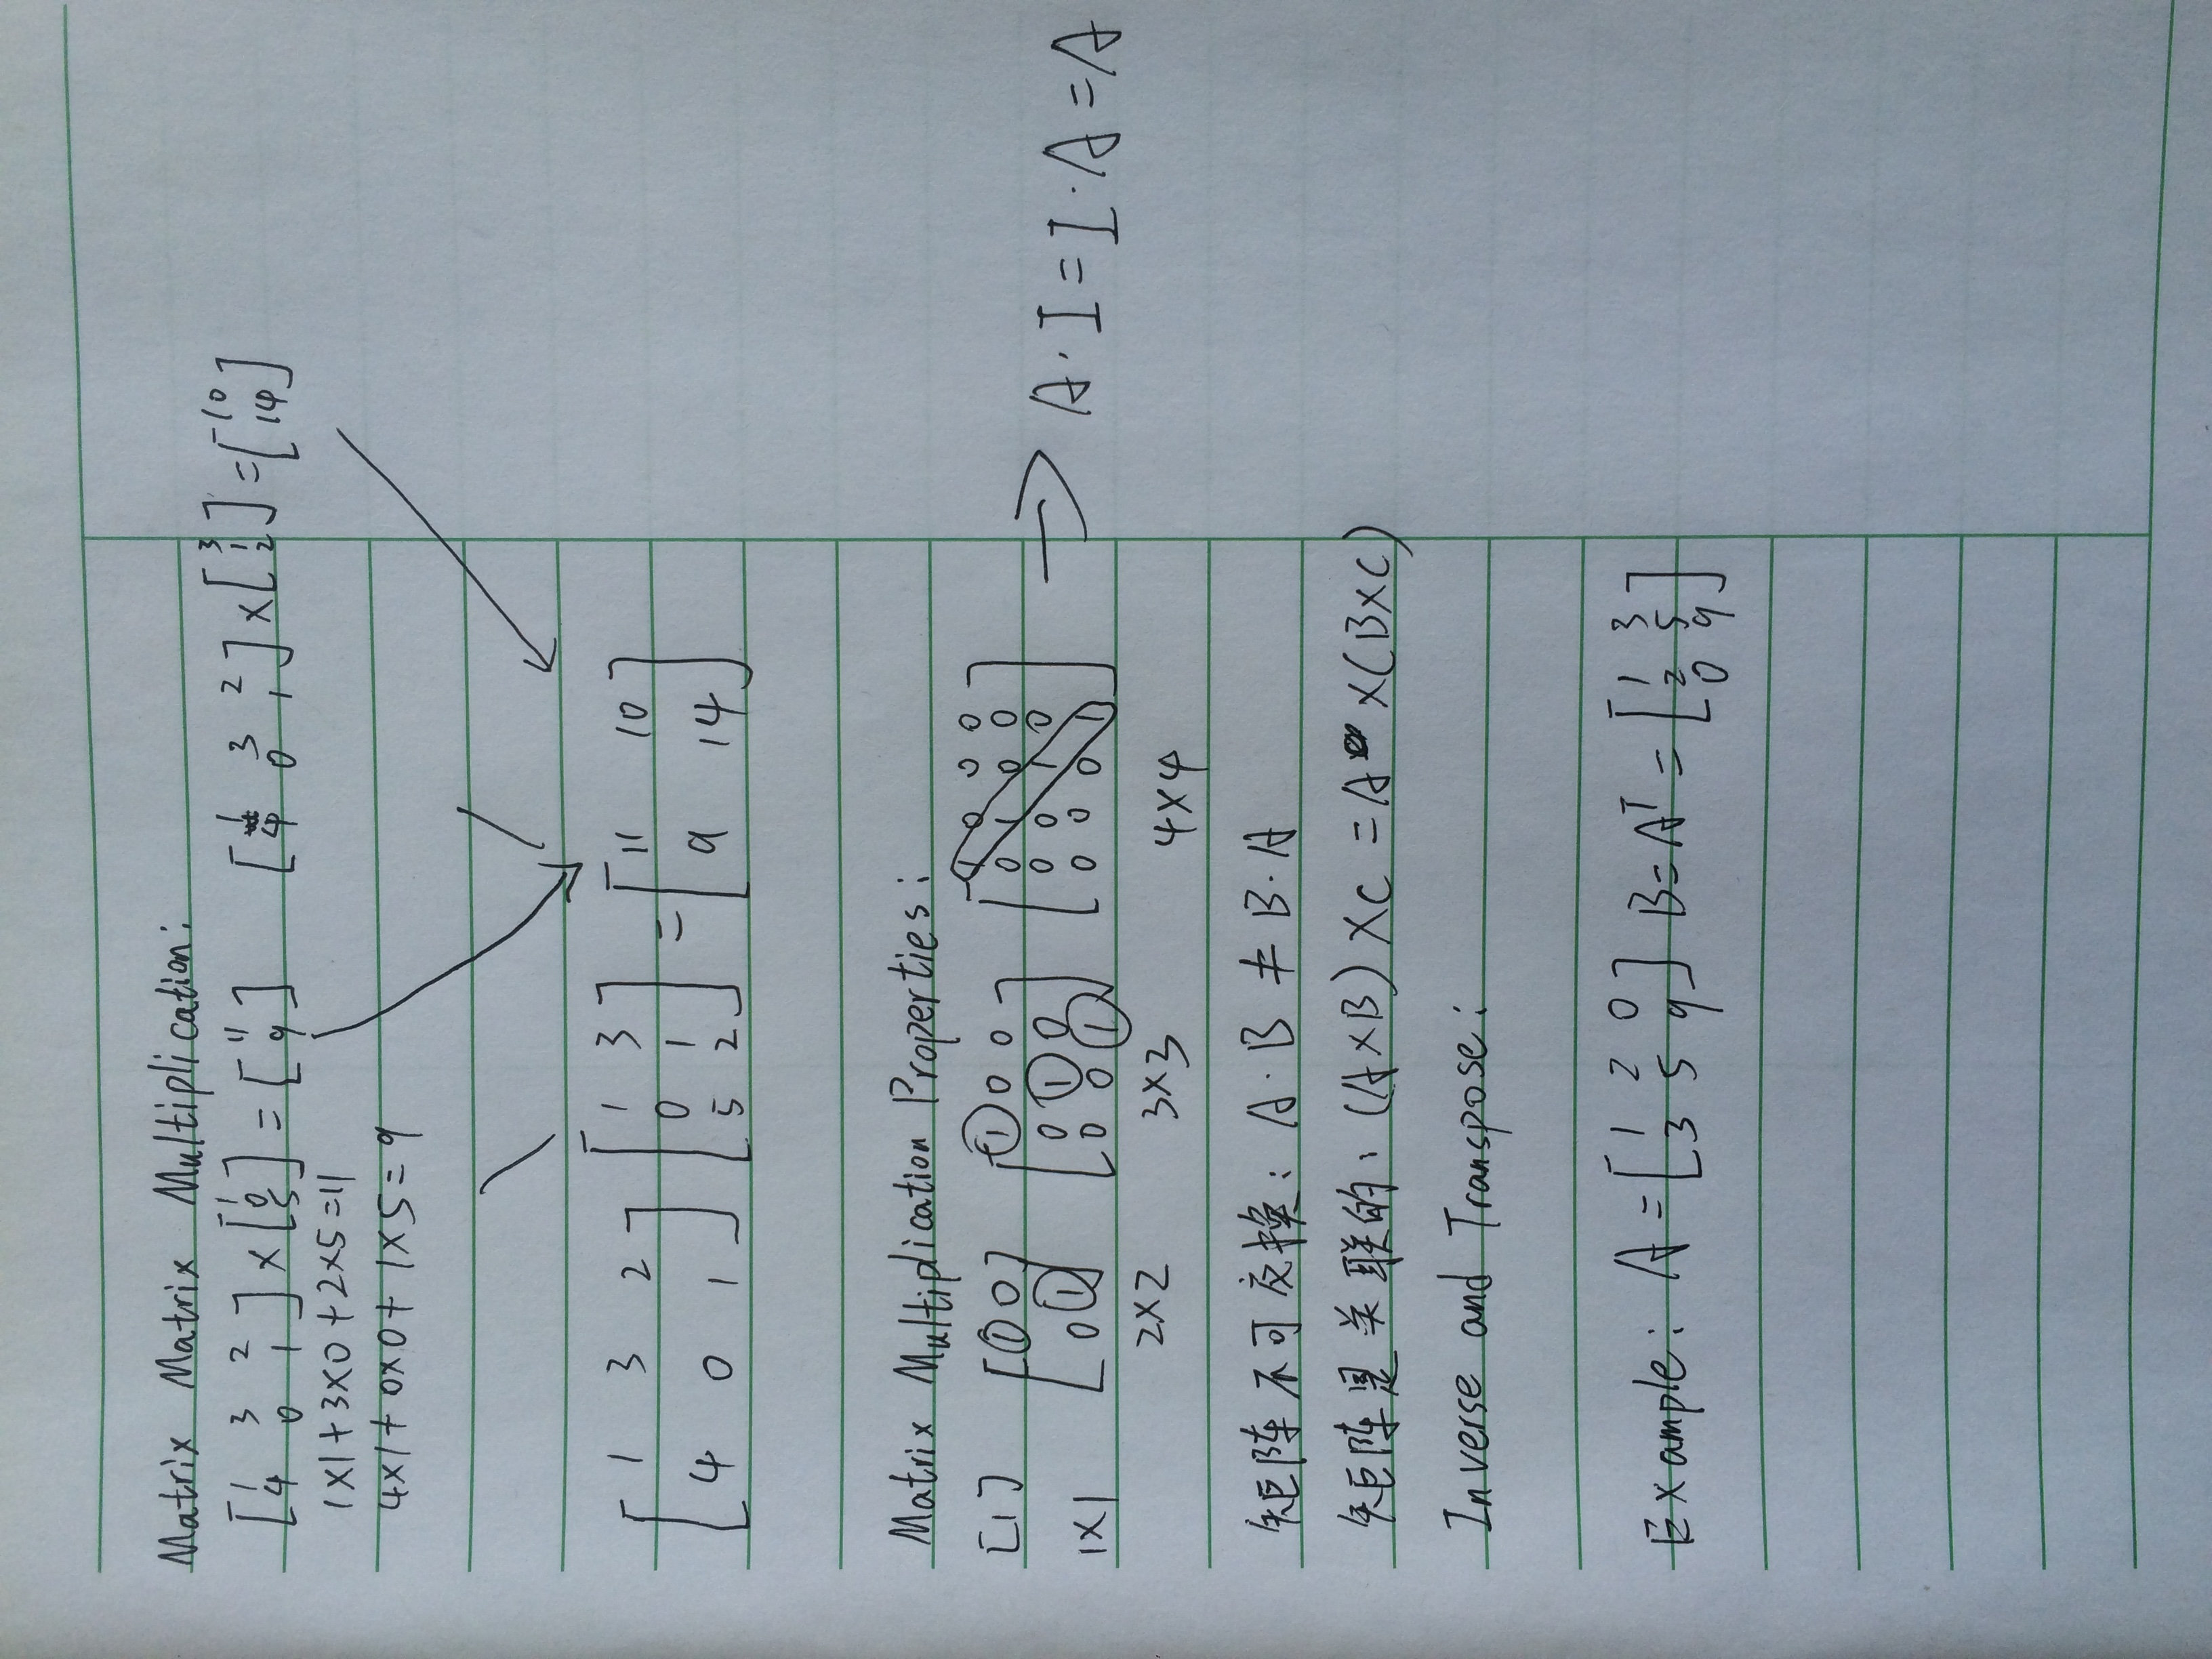 Matrix Matrix Multiplication:
[1 3 2; 4 0 1] × [1; 0; 5] = [11; 9]   [1 3 2; 4 0 1] × [3; 1; 2] = [10; 14]
1×1+3×0+2×5=11
4×1+0×0+1×5=9
[1 3 2; 4 0 1] [1 3; 0 1; 5 2] = [11 10; 9 14]
Matrix Multiplication Properties:
[1]   [1 0; 0 1]   [1 0 0; 0 1 0; 0 0 1]   [1 0 0 0; 0 1 0 0; 0 0 1 0; 0 0 0 1] → A·I=I·A=A
1×1   2×2   3×3   4×4
矩阵不可交换: A·B ≠ B·A
矩阵是关联的: (A×B)×C = A×(B×C)
Inverse and Transpose:
Example: A = [1 2 0; 3 5 9] B = Aᵀ = [1 3; 2 5; 0 9]